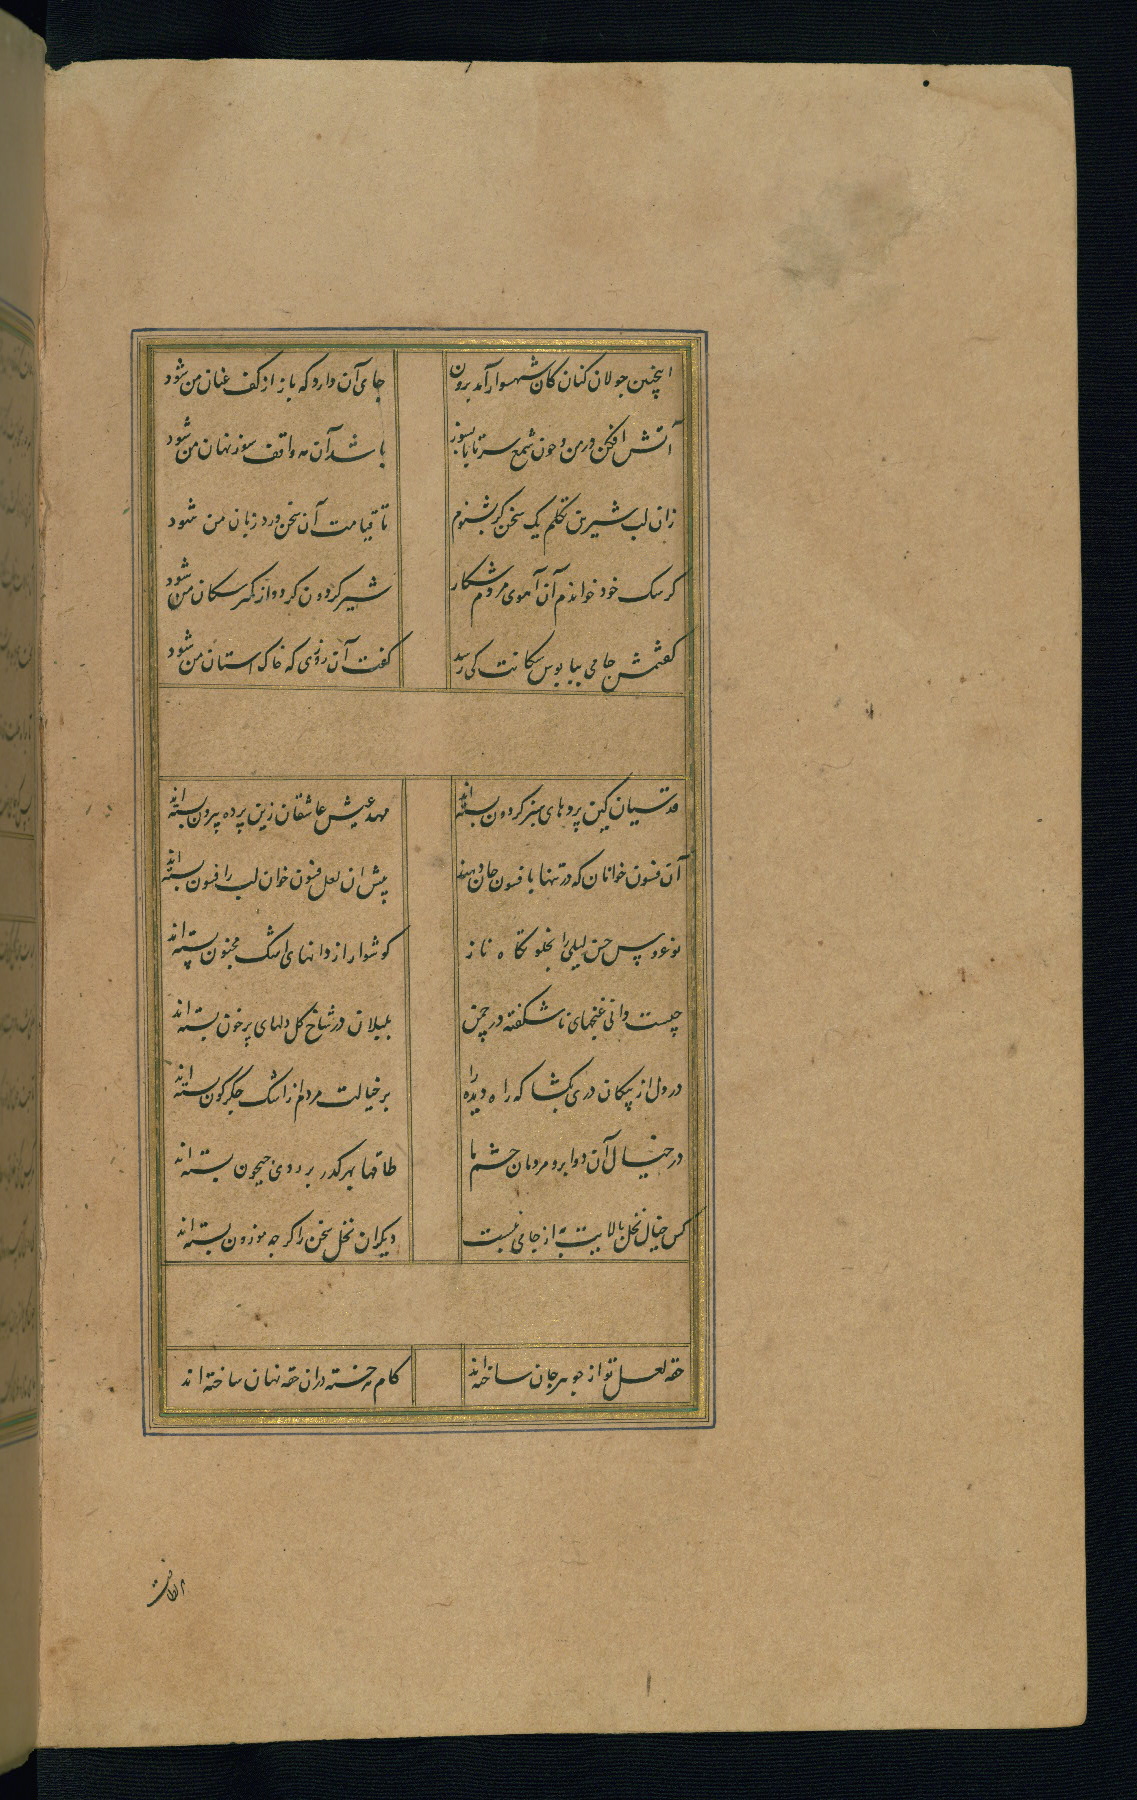 اینچنین جولان کنان کان شهسوار آمد برون جای آن دارد که باز از کف عنان من شود
آتش افکن در من و چون شمع سر تا پا بسوز باشد آن مه واقف سوز نهان من شود
زان لب شیرین تکلم یک سخن کر بشنوم تا قیامت آن سخن ورد زبان من شود
کر سک خود خواندم آن آهوی مردم شکار شیر کردون کرد از سکان من شود
کفتمش جامی بپابوس سکانت کی رسد کفت آن روزی که خاک استان من شود
قدسیان کین پردهای سبز کردون بسته اند مهد عیش عاشقان زین پرده بیرون بسته اند
آن فسون خوانان که در تنها بافسون جان دهند پیش ان لعل فسون خوان لب را فسون بسته اند
نوعروس حسن لیلی را بجلوه کاه ناز کوشوار از دانهای اشک مجنون بسته اند
چیست دانی غنچهای ناشکفته در چمن بلبلان در شاخ کل دلهای پر خون بسته اند
در دل از پیکان دری بکشا که راه دیده را بر خیالت مردم از اشک جکر کون بسته اند
در خیال آن دو ابرو مردمان چشم ما طاقها بهر کذر بر روی جیحون بسته اند
کس خیال نخل بالایت به از جامی نبست دیکران نخل سخن را کر چه موزون بسته اند
حقه لعل تو از جوهر جان ساخته اند کام هر خسته دران حقه نهان ساخته اند